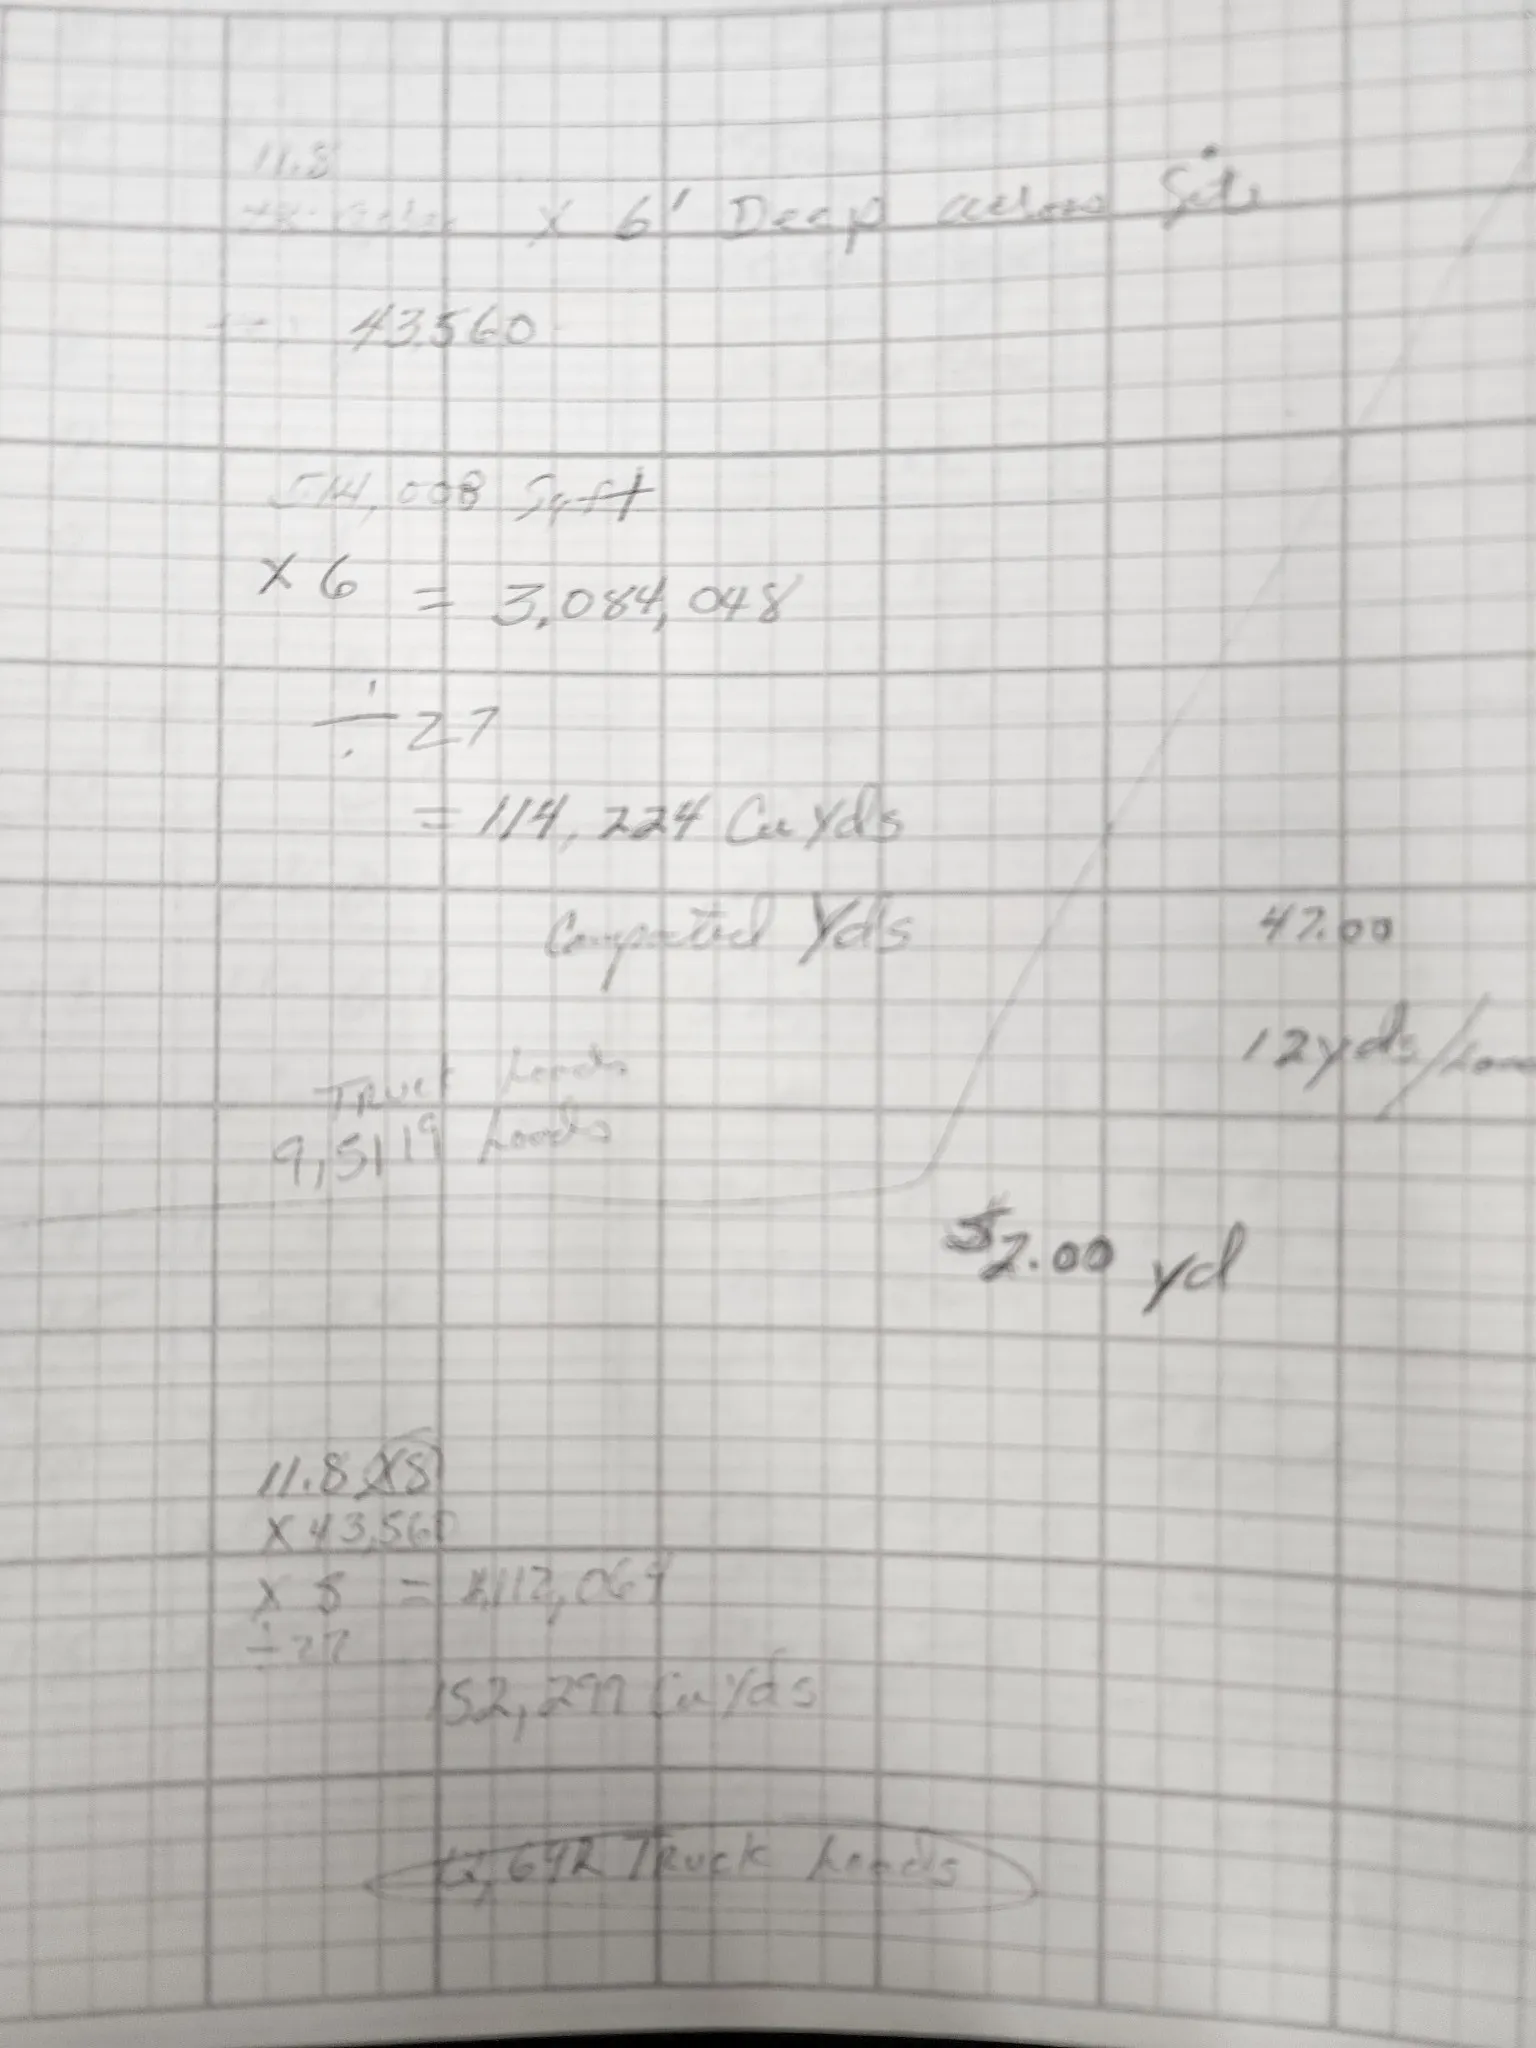 11.8
x 6' Deep across Site
43560
514,008 Sqft
x 6 = 3,084,048
÷ 27
= 114,224 Cu Yds
Compacted Yds
47.00
12 yds/
Truck Loads
9,5119 Loads
$2.00 yd
11.8 x 8
x 43,560
x 8 = 4,112,064
÷ 27
152,299 Cu Yds
12,692 Truck Loads